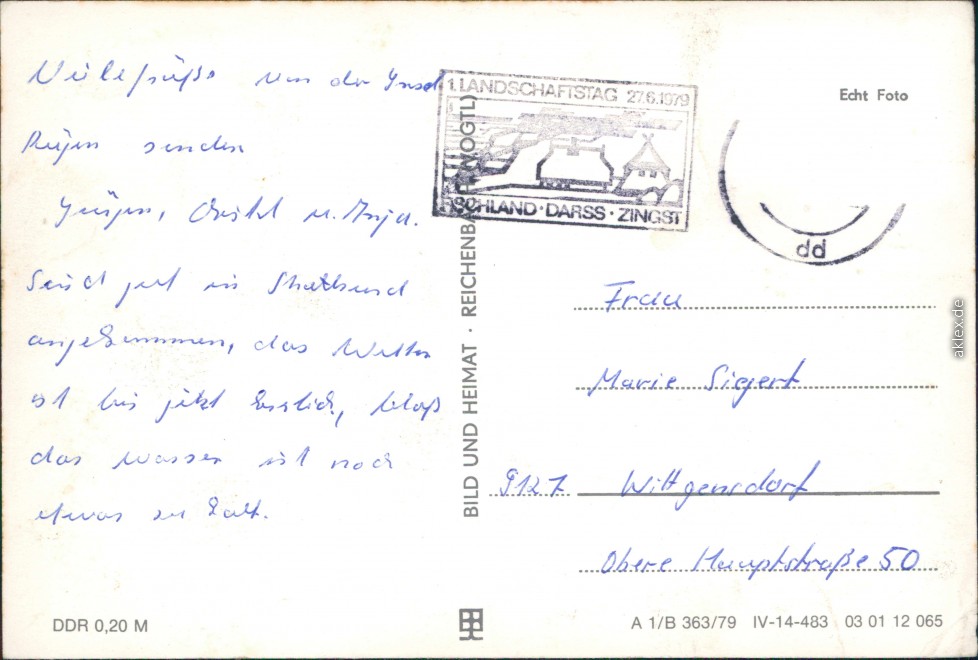 Viele Grüße von der Insel
Rügen senden
Jürgen, Christel u. Anja.
Sind gut in Stralsund
angekommen, das Wetter
ist bis jetzt herrlich, bloß
das Wasser ist noch
etwas zu kalt.
DDR 0,20 M
1. LANDSCHAFTSTAG 27.6.1979
SCHLAND · DARSS · ZINGST
BILD UND HEIMAT · REICHENBA (VOGTL)
Echt Foto
dd
Frau
Marie Siegert
9127 Wittgensdorf
Obere Hauptstraße 50
A 1/B 363/79 IV-14-483 03 01 12 065
aklex.de